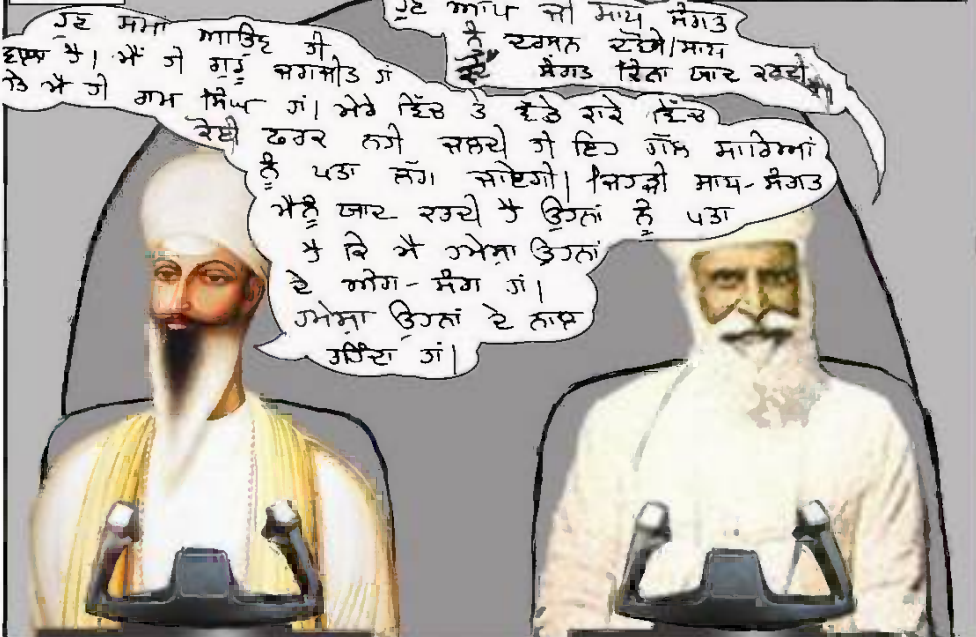 ਹੁਣ ਆਪ ਜੀ ਸਾਧ ਸੰਗਤ
ਨੂੰ ਦਰਸ਼ਨ ਦੇਵੋ।ਸਾਧ
ਸੰਗਤ ਕਿੰਨਾ ਯਾਦ ਕਰਦੀ ਹੈ।
ਹੁਣ ਸਮਾ ਆਉਣ ਹੀ
ਵਾਲਾ ਹੈ। ਮੈਂ ਹੀ ਗੁਰੂ ਜਗਜੀਤ ਹਾਂ
ਤੇ ਮੈ ਹੀ ਰਾਮ ਸਿੰਘ ਹਾਂ। ਮੇਰੇ ਵਿੱਚ ਤੇ ਵੱਡੇ ਕਾਕੇ ਵਿੱਚ
ਕੋਈ ਫਰਕ ਨਹੀ ਜਲਦੀ ਹੀ ਇਹ ਗੱਲ ਸਾਰਿਆਂ
ਨੂੰ ਪਤਾ ਲੱਗ ਜਾਏਗੀ। ਜਿਹੜੀ ਸਾਧ-ਸੰਗਤ
ਮੈਨੂੰ ਯਾਦ ਕਰਦੀ ਹੈ ਉਹਨਾਂ ਨੂੰ ਪਤਾ
ਹੈ ਕਿ ਮੈ ਹਮੇਸ਼ਾ ਉਹਨਾਂ
ਦੇ ਅੰਗ-ਸੰਗ ਹਾਂ।
ਹਮੇਸ਼ਾ ਉਹਨਾਂ ਦੇ ਨਾਲ
ਰਹਿੰਦਾ ਹਾਂ।